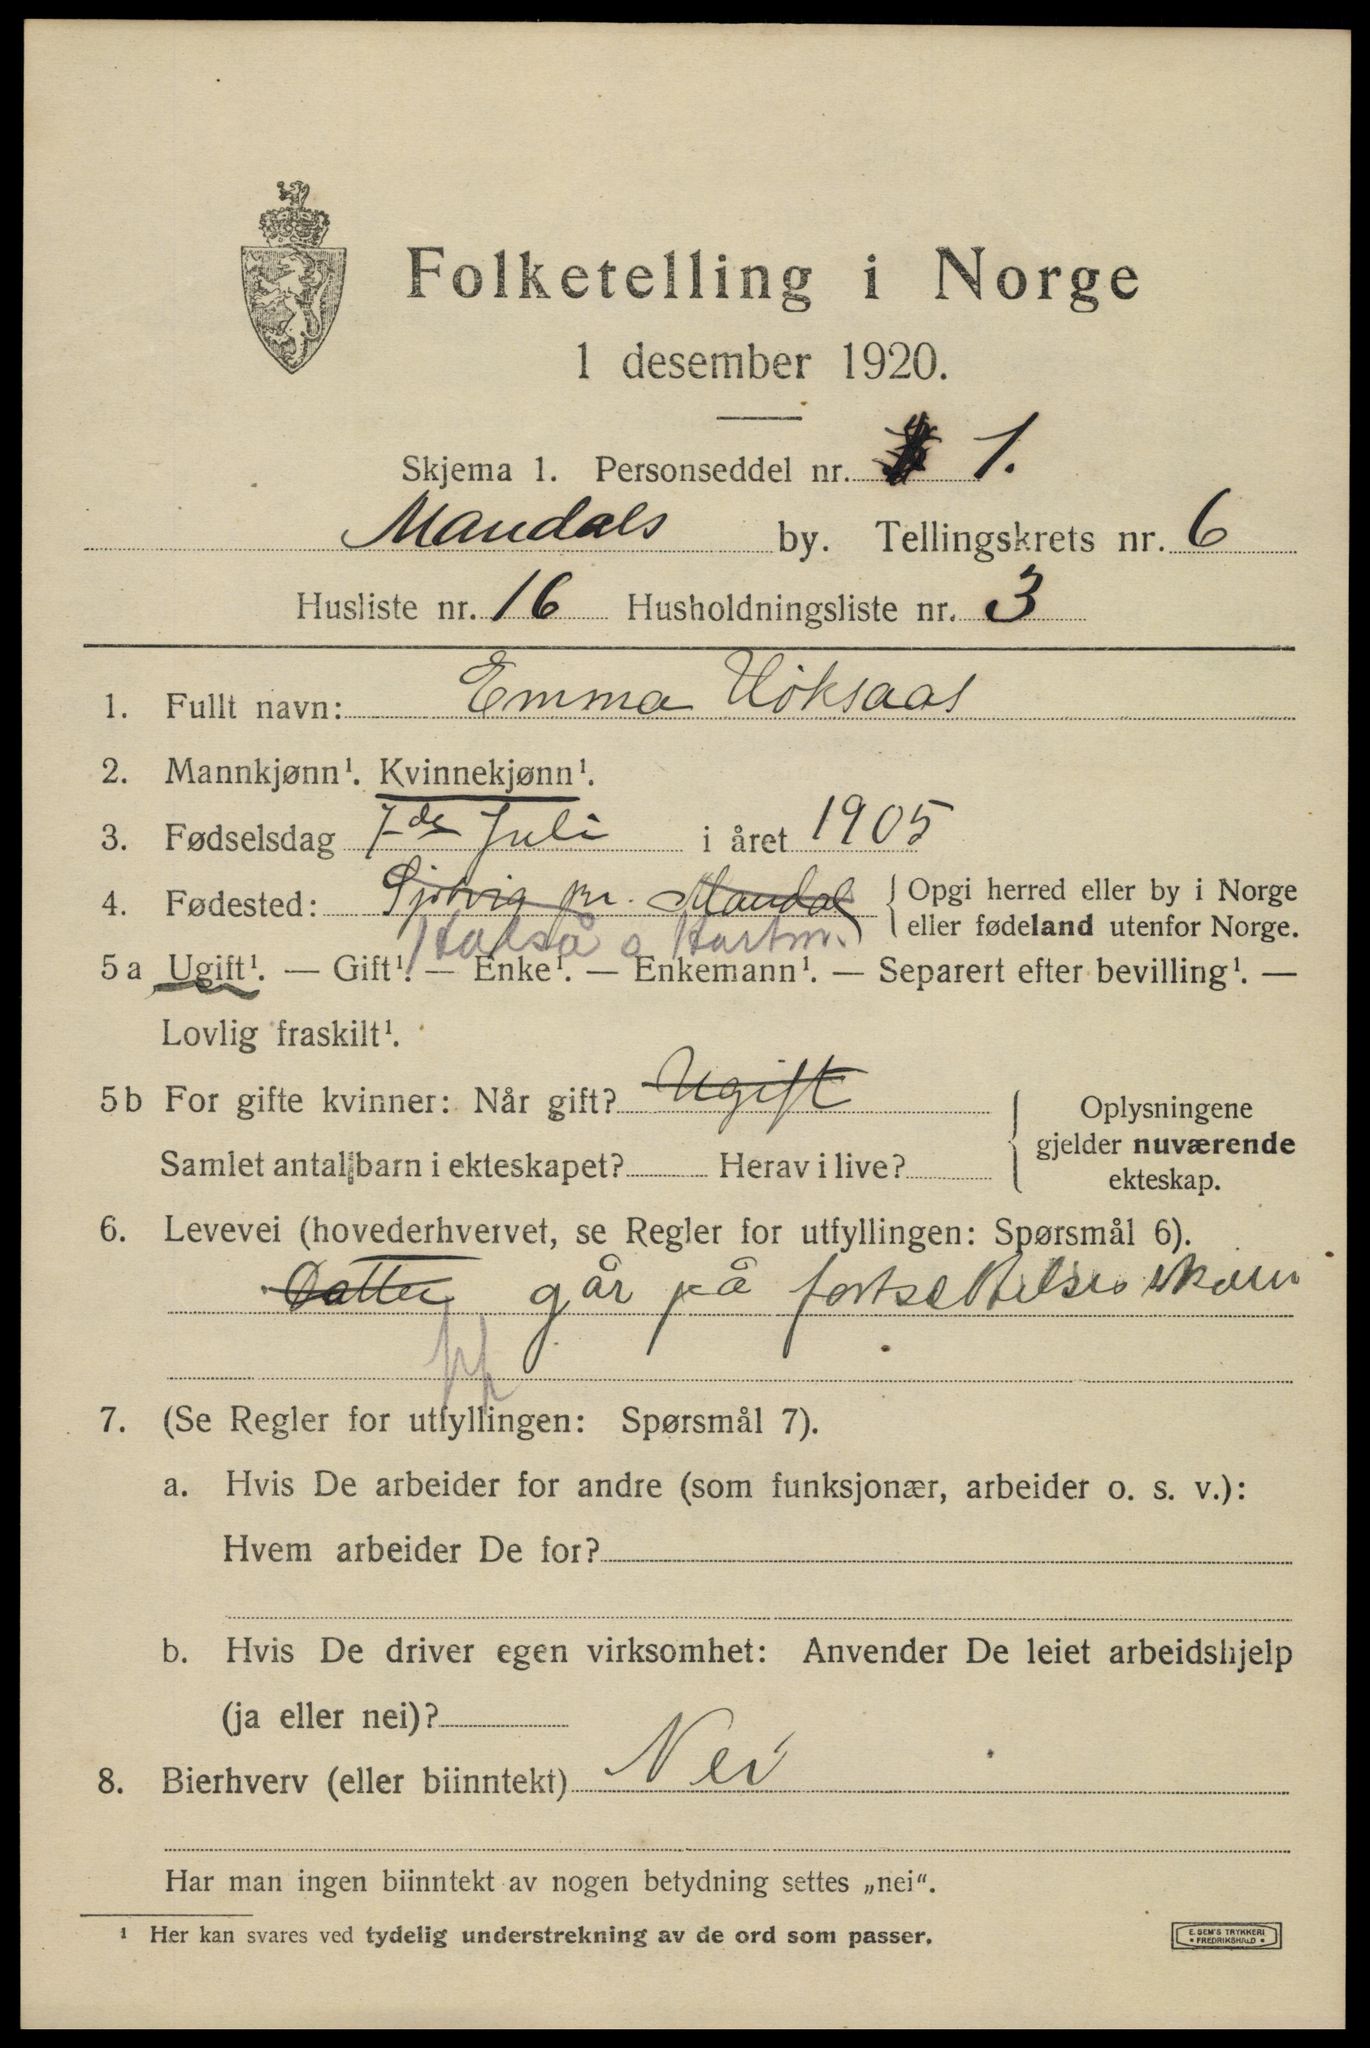 Folketelling i Norge
1 desember 1920.
Skjema 1. Personseddel nr. 1.
Mandals by. Tellingskrets nr. 6
Husliste nr. 16 Husholdningsliste nr. 3
1. Fullt navn: Emma Höksaas
2. Mannkjønn¹. Kvinnekjønn¹.
3. Fødselsdag 7de Juli i året 1905
4. Fødested: pr. Mandal { Opgi herred eller by i Norge
eller fødeland utenfor Norge.
Halså o Hartm.
5 a Ugift¹. — Gift¹. — Enke¹. — Enkemann¹. — Separert efter bevilling¹. —
Lovlig fraskilt¹.
5 b For gifte kvinner: Når gift? Ugift
Samlet antal barn i ekteskapet? Herav i live?
Oplysningene
gjelder nuværende
ekteskap.
6. Levevei (hovederhvervet, se Regler for utfyllingen: Spørsmål 6).
Datter går på fortsettelsesskolen
7. (Se Regler for utfyllingen: Spørsmål 7).
a. Hvis De arbeider for andre (som funksjonær, arbeider o. s. v.):
Hvem arbeider De for?
b. Hvis De driver egen virksomhet: Anvender De leiet arbeidshjelp
(ja eller nei)?
8. Bierhverv (eller biinntekt) Nei
Har man ingen biinntekt av nogen betydning settes „nei“.
¹ Her kan svares ved tydelig understrekning av de ord som passer.
E. SEM'S TRYKKERI
FREDRIKSHALD